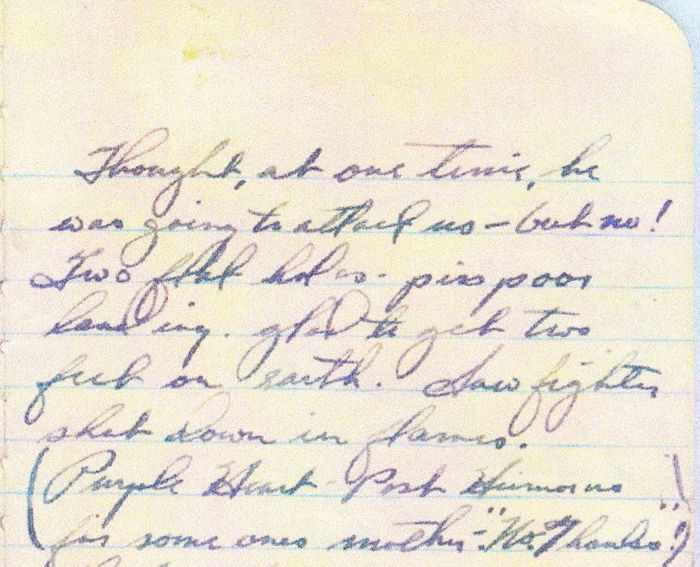 Thought, at one time, he
was going to attack us - but no!
Two flak holes - piss poor
landing. glad to get two
feet on earth. Saw fighter
shot down in flames.
(Purple Heart - Post Humorus
for some ones mother - "No. Thanks.")